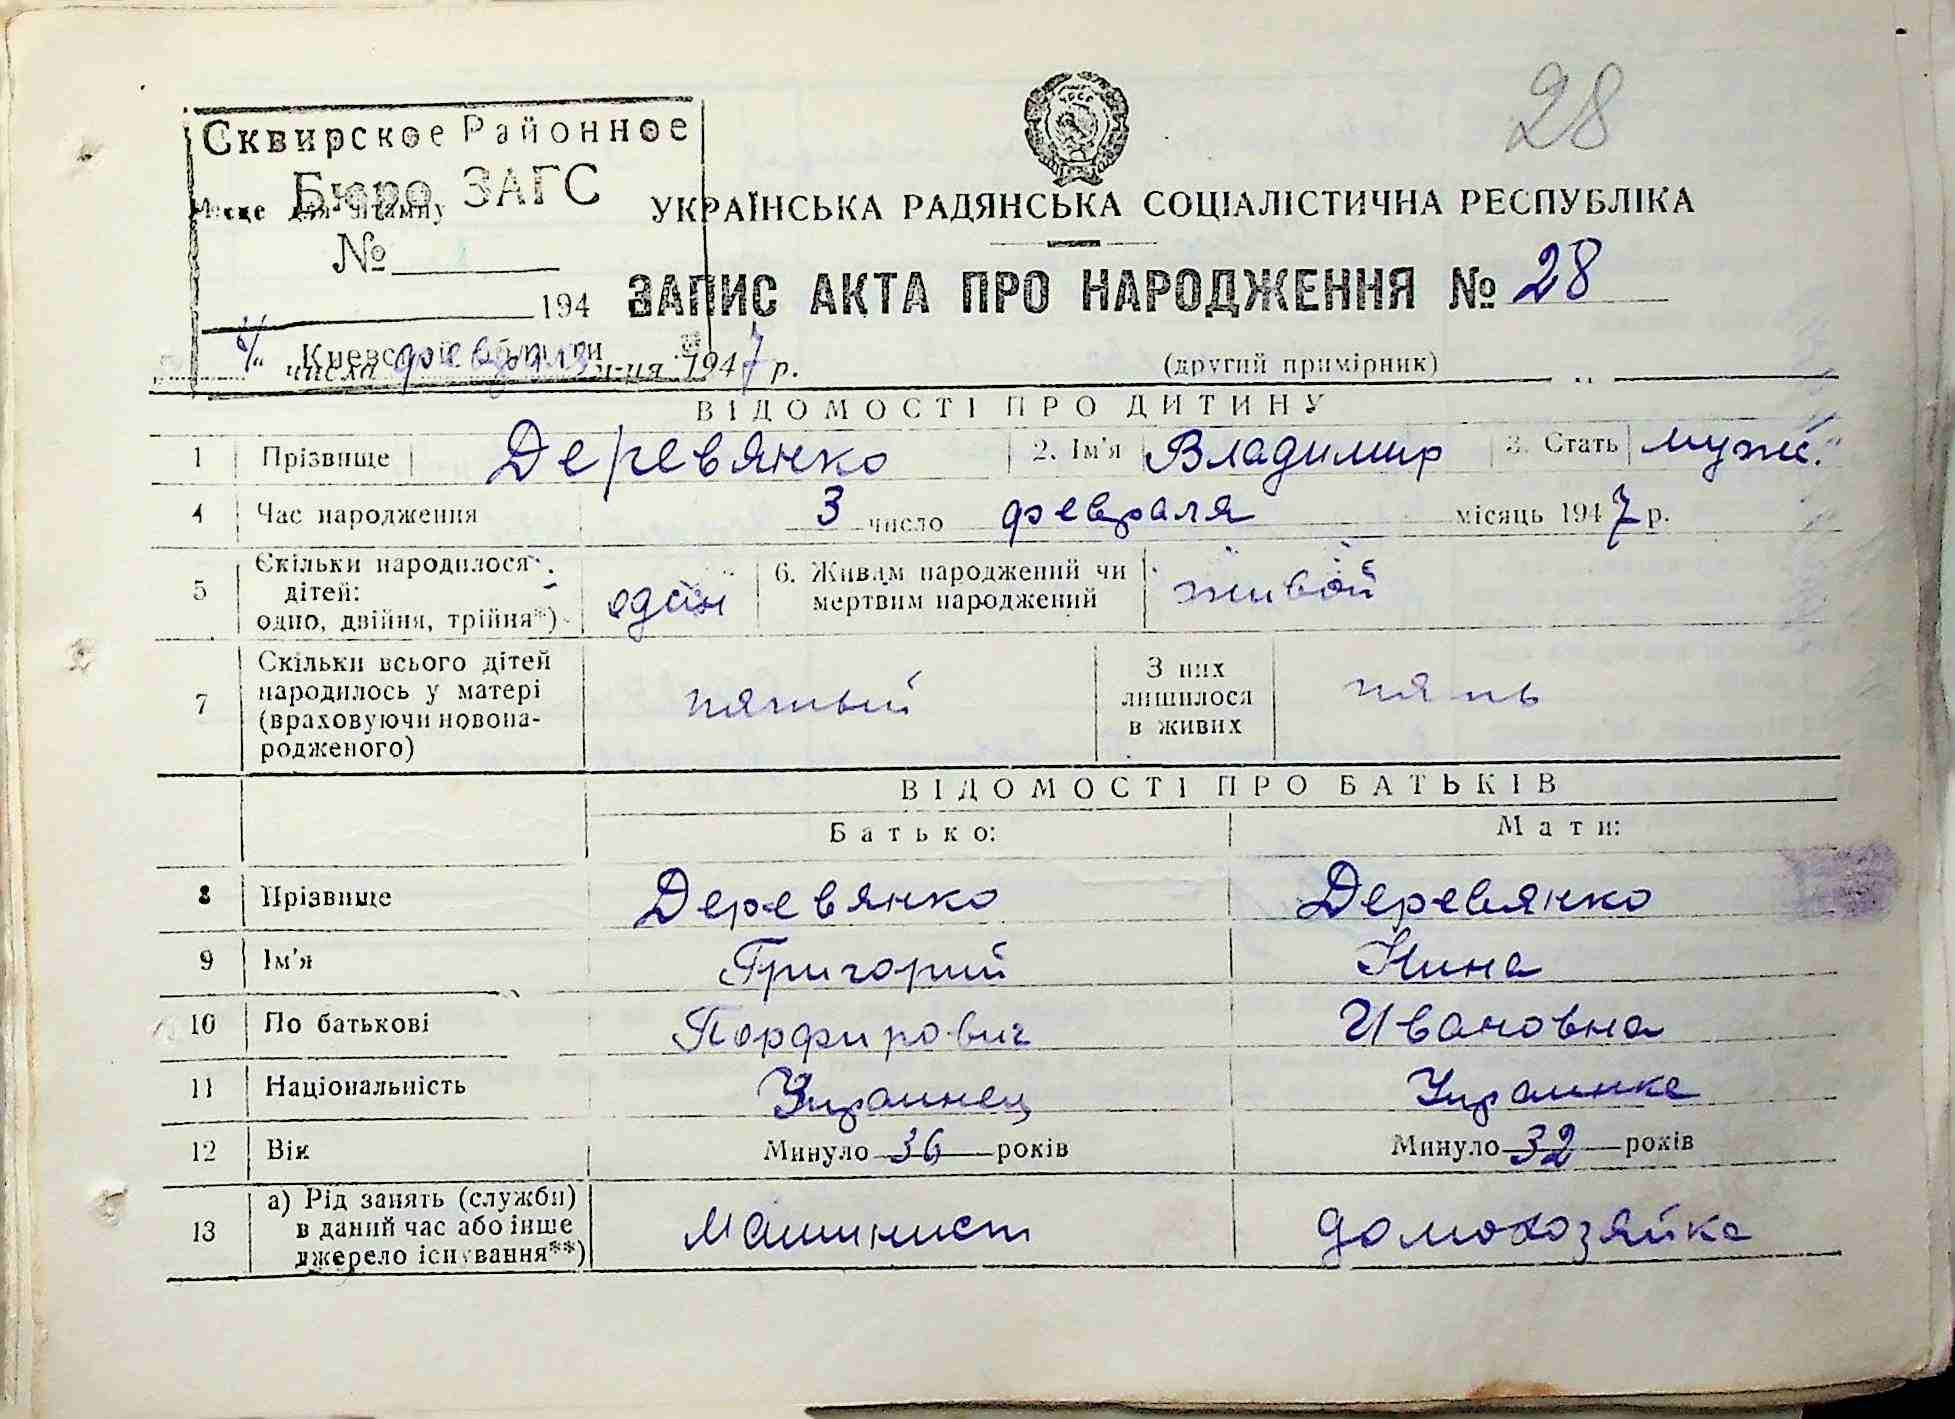 28
Сквирское Районное
Бюро ЗАГС
Місце для штампу
№
194
Киевской области
УКРАЇНСЬКА РАДЯНСЬКА СОЦІАЛІСТИЧНА РЕСПУБЛІКА
ЗАПИС АКТА ПРО НАРОДЖЕННЯ № 28
число февраля м-ця 1947 р.
(другий примірник)
ВІДОМОСТІ ПРО ДИТИНУ
1 Прізвище Деревянко 2. Ім'я Владимир 3. Стать муж.
4 Час народження 3 число февраля місяць 1947 р.
5 Скільки народилося дітей: одно, двійня, трійня*) один 6. Живим народжений чи мертвим народжений живой
7 Скільки всього дітей народилось у матері (враховуючи новона-родженого) пятый З них лишилося в живих пять
ВІДОМОСТІ ПРО БАТЬКІВ
Батько: Мати:
8 Прізвище Деревянко Деревянко
9 Ім'я Григорий Нина
10 По батькові Порфирович Ивановна
11 Національність Украинец Украинка
12 Вік Минуло 36 років Минуло 32 років
13 а) Рід занять (служби) в даний час або інше джерело існування**) Машинист домохозяйка